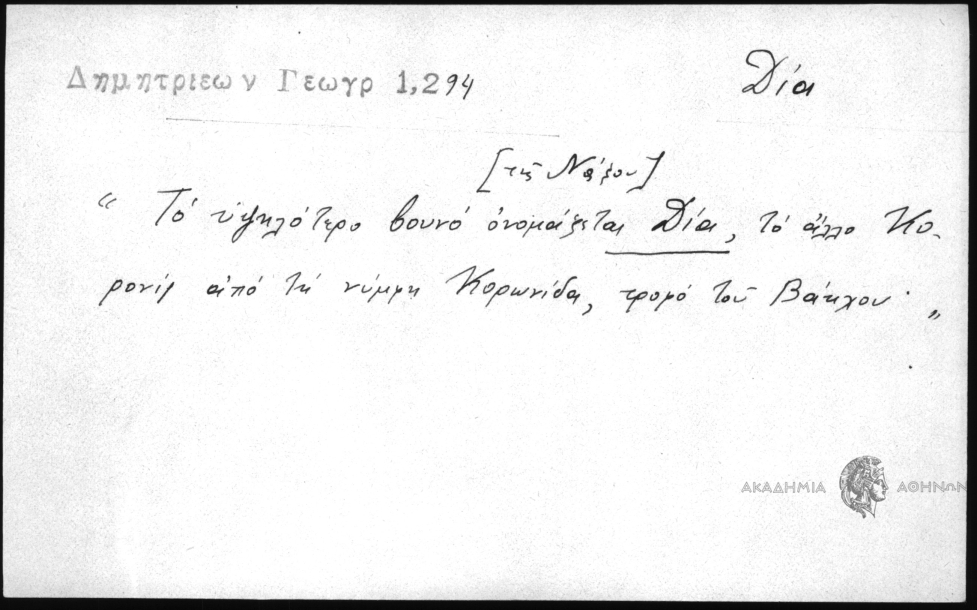 Δημητριεων Γεωγρ 1,294
Δία
[τῆς Νάξου]
“ Τό ὑψηλότερο βουνό ὀνομάζεται Δία, τό ἄλλο Κο-
ρονίς ἀπό τή νύμφη Κορωνίδα, τροφό τοῦ Βάκχου „
ΑΚΑΔΗΜΙΑ ΑΘΗΝΩΝ